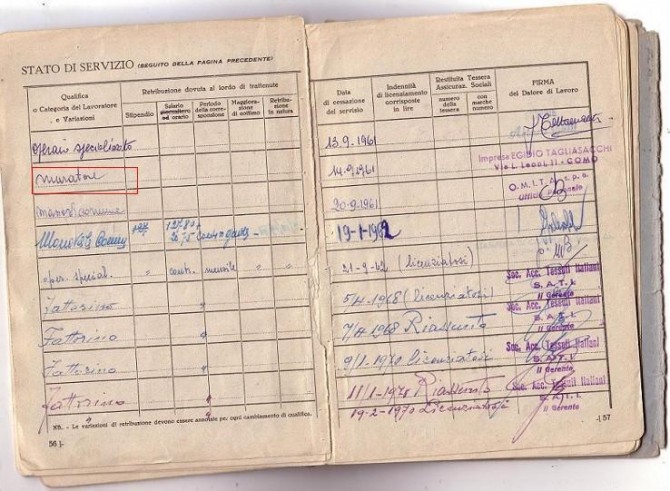 STATO DI SERVIZIO (SEGUITO DELLA PAGINA PRECEDENTE)
Qualifica
o Categoria del Lavoratore
e Variazioni
Retribuzione dovuta al lordo di trattenute
Stipendio
Salario
ad orario
Periodo
della cor-
responsione
Maggiora-
zione
di cottimo
Retribu-
zione
in natura
operaio specializzato
muratore
manov. comune
Manovale Comune
oper. special.
Fattorino
Fattorino
Fattorino
Fattorino
NB. - Le variazioni di retribuzione devono essere annotate per ogni cambiamento di qualifica.
56 ).
Data
di cessazione
del servizio
Indennità
di licenziamento
corrisposte
in lire
Restituita Tessera
Assicuraz. Sociali
numero
della
tessera
con
marche
numero
FIRMA
del Datore di Lavoro
13.9.1961
14.9.1961
Impresa EGIDIO TAGLIASACCHI
COMO
20-9-1961
O.M.I.T.A. s.p.a.
Ufficio Personale
19-1-1962
21-9-62 (licenziatosi)
Soc. Acc. Tessuti Italiani
S.A.T.I.
Il Gerente
5/4-1968 (licenziatosi)
Soc. Acc. Tessuti Italiani
S.A.T.I.
Il Gerente
7/4-1968 Riassunto
Soc. Acc. Tessuti Italiani
S.A.T.I.
Il Gerente
9/1-1970 licenziatosi
11/1-1970 Riassunto
Soc. Acc. Tessuti Italiani
S.A.T.I.
Il Gerente
19-2-1970 Licenziatosi
57